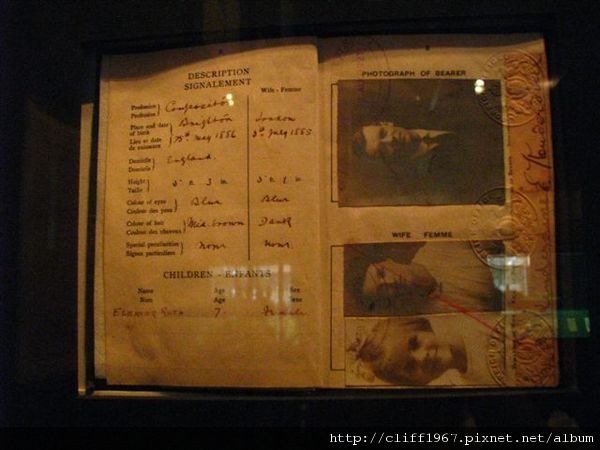 DESCRIPTION
SIGNALEMENT
Wife - Femme
Profession
Profession
Place and date of birth
Lieu et date de naissance
Brighton
London
May 1886
July 1885
Domicile
Domicile
England
Height
Taille
5 ft. 3 in.
5 ft. 1 in.
Colour of eyes
Couleur des yeux
Blue
Blue
Colour of hair
Couleur des cheveux
Mid-brown
Dark
Special peculiarities
Signes particuliers
None
None
CHILDREN - ENFANTS
Name Age Sex
Nom Age Sexe
ELEANOR RUTH 7 Female
PHOTOGRAPH OF BEARER
WIFE FEMME
http://cliff1967.pixnet.net/album